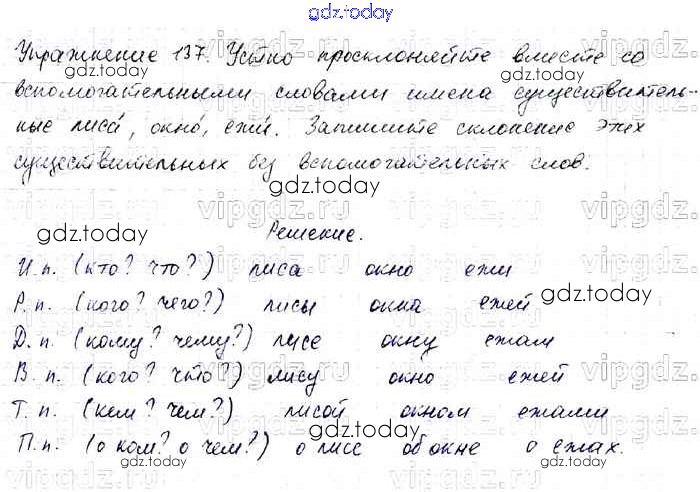 gdz.today
Упражнение 137. Устно просклоняйте вместе со
gdz.today gdz.today
вспомогательными словами имена существитель-
ные лиса́, окно́, ежи́. Запишите склонение этих
существительных без вспомогательных слов.
gdz.today
vipgdz.ru vipgdz.ru vipgdz.ru
gdz.today
Решение.
И.п. (кто? что?) лиса окно ежи
Р.п. (кого? чего?) лисы окна ежей gdz.today
Д.п. (кому? чему?) лисе окну ежам
В.п. (кого? что?) лису окно ежей
vipgdz.ru vipgdz.ru vipgdz.ru
Т.п. (кем? чем?) лисой окном ежами
gdz.today
П.п. (о ком? о чем?) о лисе об окне о ежах.
gdz.today gdz.today